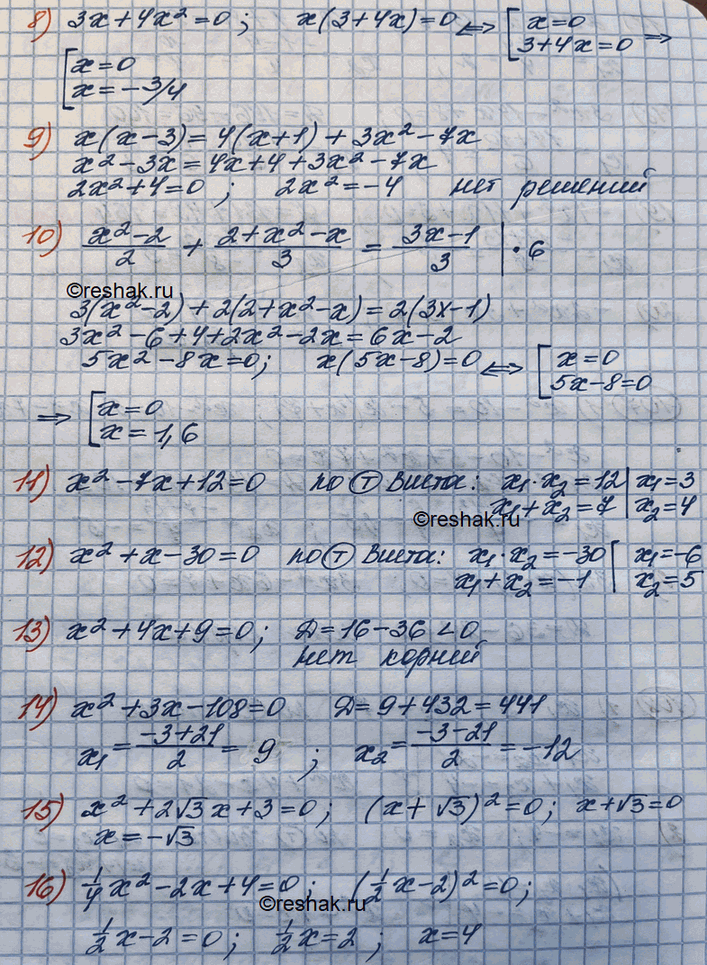 8) 3x+4x²=0; x(3+4x)=0 <=> [x=0
3+4x=0 =>
[x=0
x=-3/4
9) x(x-3)=4(x+1)+3x²-7x
x²-3x=4x+4+3x²-7x
2x²+4=0; 2x²=-4 нет решений
10) (x²-2)/2 + (2+x²-x)/3 = (3x-1)/3 | • 6
©reshak.ru
3(x²-2)+2(2+x²-x)=2(3x-1)
3x²-6+4+2x²-2x=6x-2
5x²-8x=0; x(5x-8)=0 <=> [x=0
5x-8=0
=> [x=0
x=1,6
11) x²-7x+12=0 по Ⓣ Виета: x₁·x₂=12 | x₁=3
x₁+x₂=7 | x₂=4
©reshak.ru
12) x²+x-30=0 по Ⓣ Виета: x₁·x₂=-30 [x₁=-6
x₁+x₂=-1 [x₂=5
13) x²+4x+9=0; D=16-36<0
нет корней
14) x²+3x-108=0 D=9+432=441
x₁=(-3+21)/2=9; x₂=(-3-21)/2=-12
15) x²+2√3x+3=0; (x+√3)²=0; x+√3=0
x=-√3
16) ¼x²-2x+4=0; (½x-2)²=0;
©reshak.ru
½x-2=0; ½x=2; x=4